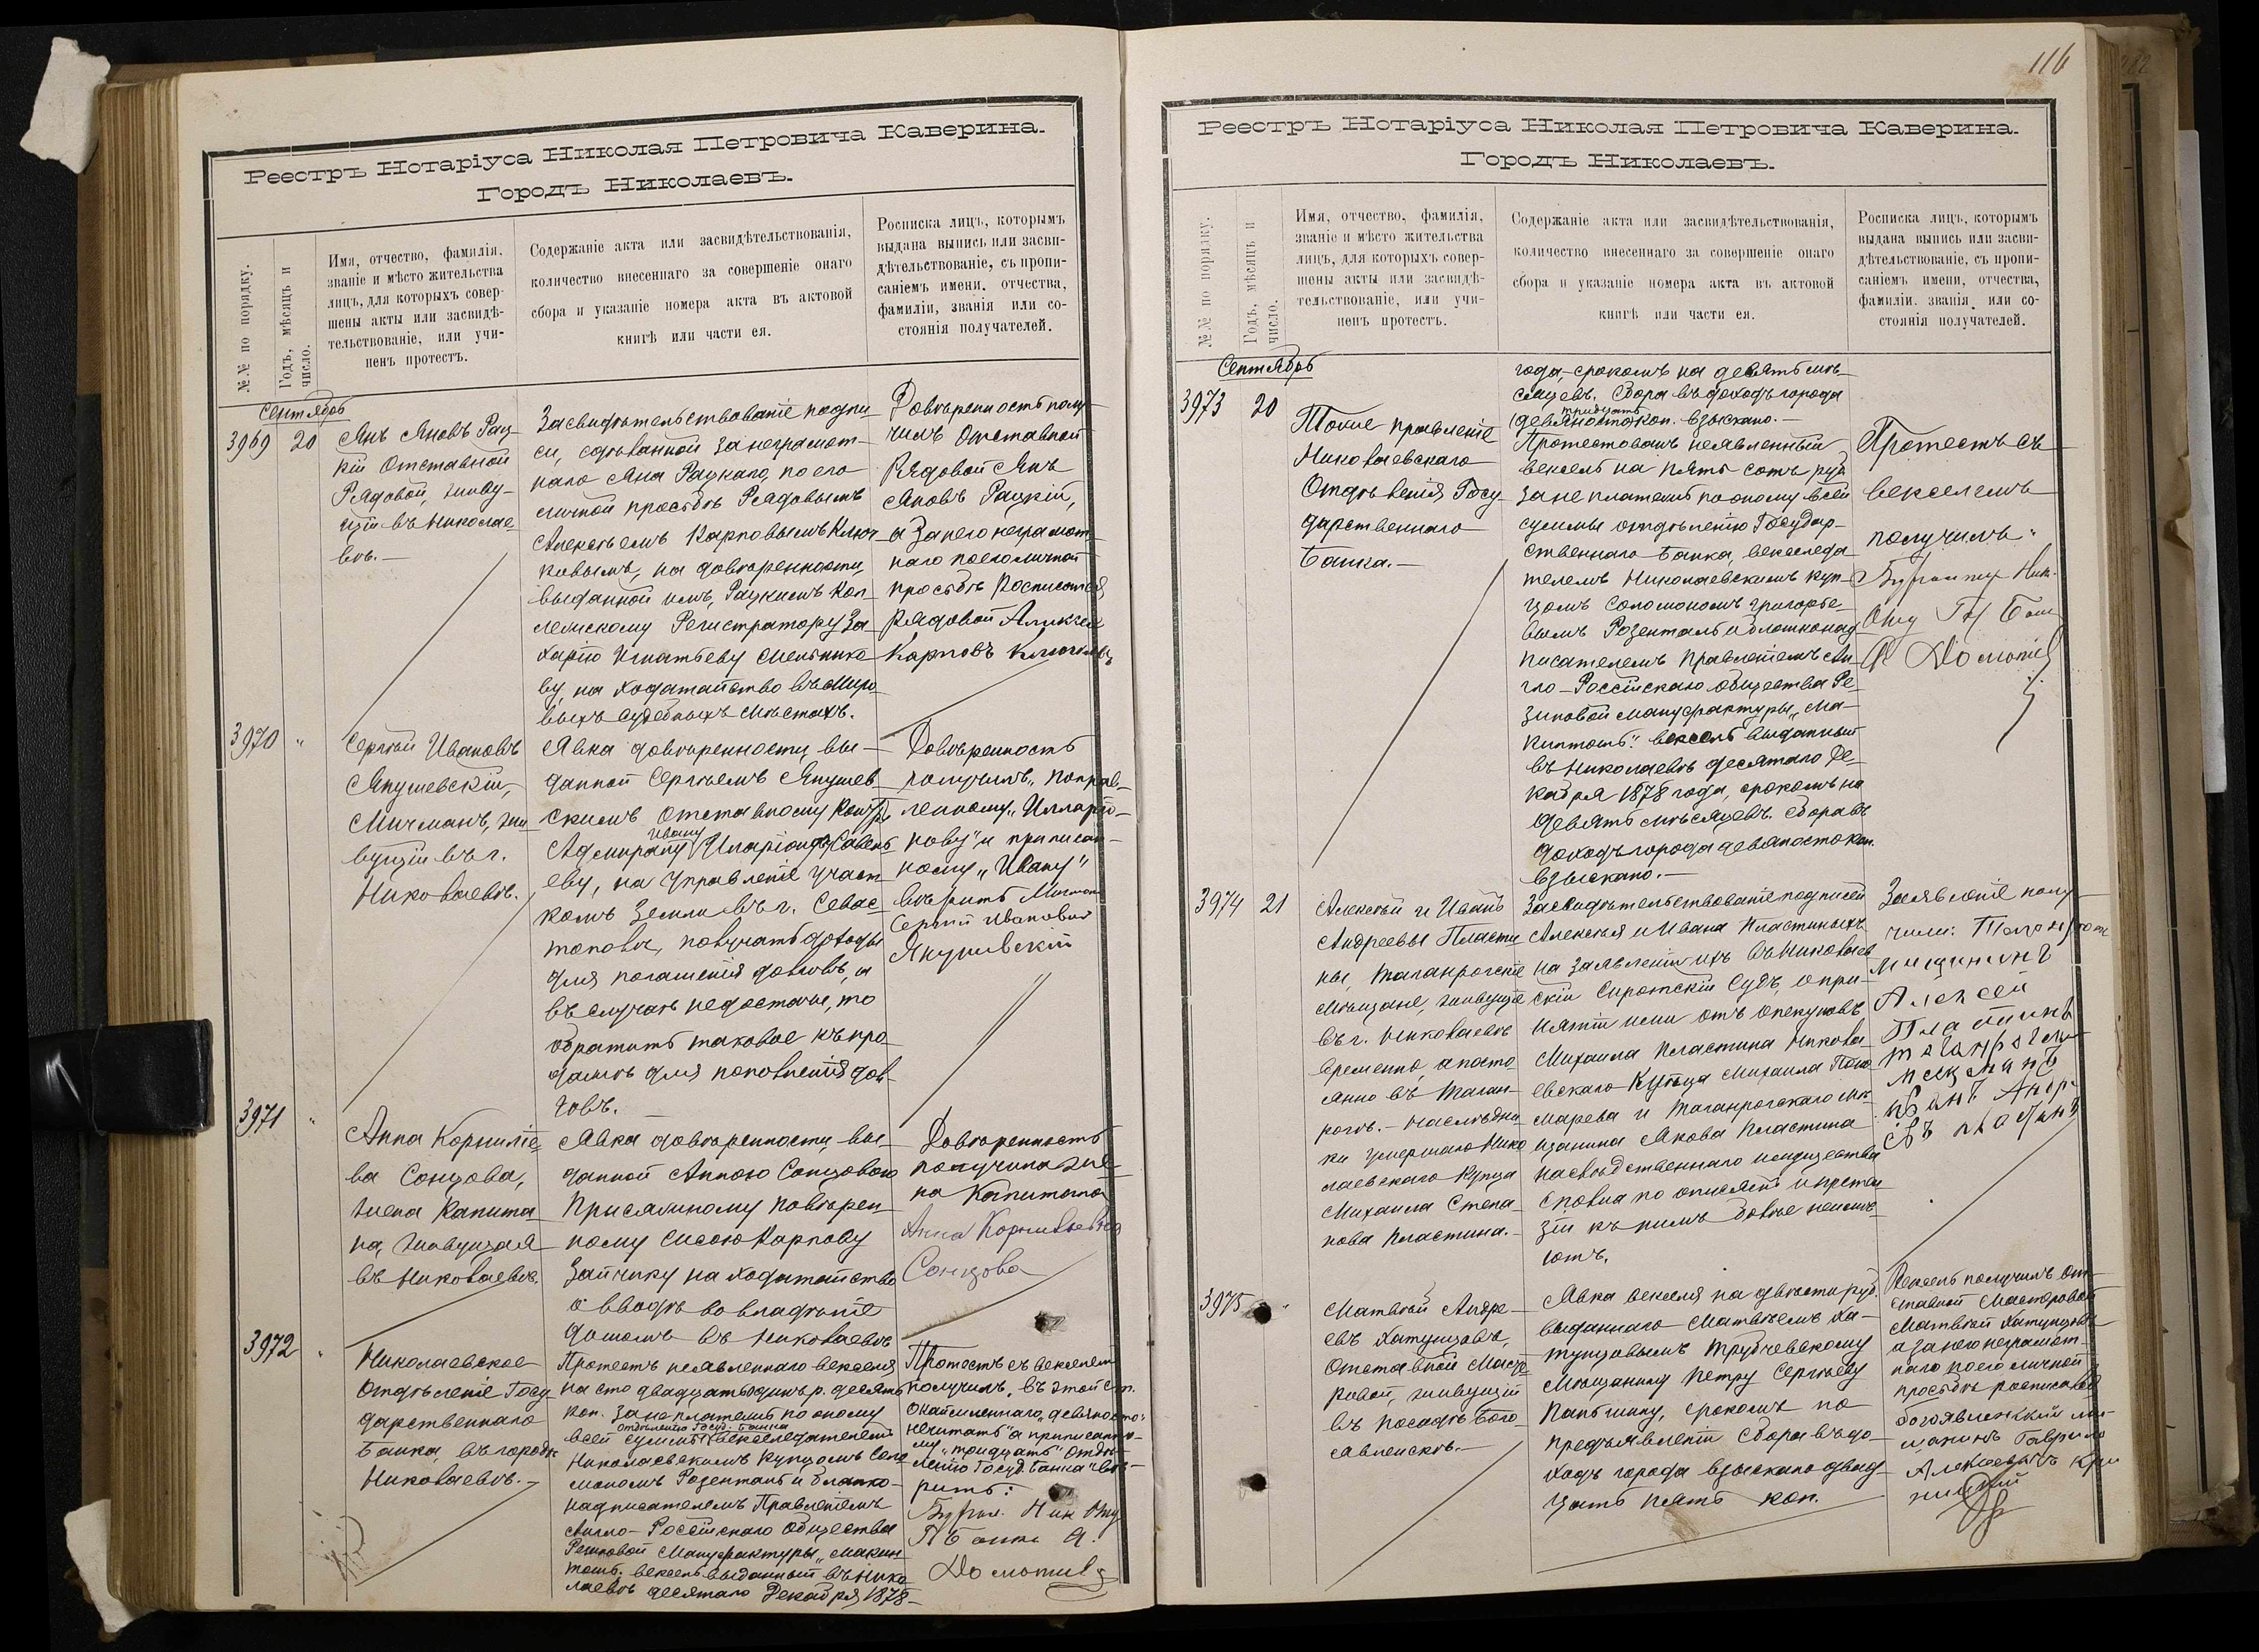 Реестръ Нотаріуса Николая Петровича Каверина.
Городъ Николаевъ.
№№ по порядку.
Годъ, мѣсяцъ и число.
Имя, отчество, фамилія,
званіе и мѣсто жительства
лицъ, для которыхъ совер-
шены акты или засвидѣ-
тельствованіе, или учи-
ненъ протестъ.
Содержаніе акта или засвидѣтельствованія,
количество внесеннаго за совершеніе онаго
сбора и указаніе номера акта въ актовой
книгѣ или части ея.
Росписка лицъ, которымъ
выдана выпись или засви-
дѣтельствованіе, съ пропи-
саніемъ имени, отчества,
фамиліи, званія или со-
стоянія получателей.
Сентябрь
3969 20
Янъ Яновъ Рац-
кій Отставной
Рядовой, живу-
щій въ Николае-
вѣ.—
Засвидѣтельствованіе подпи-
си, сдѣланной за неграмот-
наго Яна Рацкаго, по его
личной просьбѣ Рядовымъ
Алексѣемъ Карповымъ Ключ-
ковымъ, на довѣренности,
выданной имъ, Рацкимъ Кол-
лежскому Регистратору За-
харію Игнатьеву Мельнико-
ву, на ходатайство въ Миро-
выхъ Судебныхъ Мѣстахъ.
Довѣренность полу-
чилъ Отставной
Рядовой Янъ
Яновъ Рацкій,
а за него неграмот-
наго по его личной
просьбѣ росписался
рядовой Алексѣй
Карповъ
3970 "
Сергѣй Ивановъ
Янушевскій,
Мичманъ, жи-
вущій въ г.
Николаевѣ.
Явка довѣренности, вы-
данной Сергѣемъ Янушев-
скимъ Отставному Контръ
Адмиралу Ивану Иларіонову Савель-
еву, на управленіе участ-
комъ земли въ г. Севас-
тополѣ, получать доходы
для погашенія долговъ, и
въ случаѣ недостачи, то
обратить таковое къ про-
дажѣ для пополненія дол-
говъ.
Довѣренность
получилъ, поправ-
ленному „Илларіо-
нову" и приписан-
ному „Ивану"
вѣрить Мичманъ
Сергѣй Ивановичъ
Янушевскій
3971 "
Анна Корниліе-
ва Сонцова,
жена Капита-
на, живущая
въ Николаевѣ.
Явка довѣренности, вы-
данной Анною Сонцовою
Присяжному повѣрен-
ному Сысою Карпову
Зайчику на ходатайство
о вводѣ во владѣніе
домомъ въ Николаевѣ
Довѣренность
получила же-
на Капитана
Анна Корнильевна
Сонцова
3972 "
Николаевское
Отдѣленіе Госу-
дарственнаго
Банка, въ городѣ
Николаевѣ.—
Протестъ неявленнаго векселя
на сто двадцать одинъ р. десять
коп. за не платежъ по оному
всей суммы отдѣленію Госуд. Банка векселедателемъ
Николаевскимъ Купцомъ Соло-
мономъ Розенталь и бланко-
надписателемъ Правленіемъ
Англо-Россійскаго Общества
Резиновой Мануфактуры „Макин-
тошъ." вексель выданный въ Нико-
лаевѣ десятаго Декабря 1878
Протестъ съ векселемъ
получилъ, въ этой ст.
„девяносто"
нечитать а приписанно-
му „тридцать" Отдѣ-
ленію Госуд. Банка" вѣ-
рить:
116
Реестръ Нотаріуса Николая Петровича Каверина.
Городъ Николаевъ.
№№ по порядку.
Годъ, мѣсяцъ и число.
Имя, отчество, фамилія,
званіе и мѣсто жительства
лицъ, для которыхъ совер-
шены акты или засвидѣ-
тельствованіе, или учи-
ненъ протестъ.
Содержаніе акта или засвидѣтельствованія,
количество внесеннаго за совершеніе онаго
сбора и указаніе номера акта въ актовой
книгѣ или части ея.
Росписка лицъ, которымъ
выдана выпись или засви-
дѣтельствованіе, съ пропи-
саніемъ имени, отчества,
фамиліи, званія, или со-
стоянія получателей.
Сентябрь
года, срокомъ на девять мѣ-
сяцевъ. Сбора въ доходъ города
тридцать
(девяносто) коп. взыскано.—
3973 20
Тоже правленіе
Николаевскаго
Отдѣленія Госу-
дарственнаго
Банка.—
Протестованъ неявленный
вексель на пять сотъ руб
за не платежъ по оному всей
суммы отдѣленію Государ-
ственнаго Банка, векселеда-
телемъ Николаевскимъ куп-
цомъ Соломономъ Григорье-
вымъ Розенталь и бланконад-
писателемъ Правленіемъ Ан-
гло-Россійскаго общества Ре-
зиновой мануфактуры „Ма-
кинтошъ." вексель выданный
въ Николаевѣ десятаго Де-
кабря 1878 года, срокомъ на
девять мѣсяцевъ. сбора въ
доходъ города девяносто коп.
взыскано.—
Протестъ съ
векселемъ
получилъ
3974 21
Алексѣй и Иванъ
Андреевы Пласти-
ны, Таганрогскіе
мѣщане, живущіе
въ г. Николаевѣ
временно, а посто-
янно въ Таган-
рогѣ.— Наслѣдни-
ки умершаго Нико-
лаевскаго Купца
Михаила Степа-
нова Пластина.—
Засвидѣтельствованіе подписей
Алексѣя и Ивана Пластиныхъ
на заявленіи ихъ въ Николаев-
скій Сиротскій Судъ, о при-
нятіи ими отъ опекуновъ
Михаила Пластина Никола-
евскаго Купца Михаила Поно-
марева и Таганрогскаго мѣ-
щанина Якова Пластина
наслѣдственнаго имущества
сполна по описямъ и претен-
зіи къ нимъ болѣе неимѣ-
ютъ.
Заявленіе полу-
чили:
Алексей
Пластинъ
3975 "
Матвѣй Андре-
евъ Хатунцовъ,
Отставной Масте-
ровой, живущій
въ посадѣ Бого-
явленскѣ.—
Явка векселя на двѣсти руб.
выданнаго Матвѣемъ Ха-
тунцовымъ Трубчевскому
Мѣщанину Петру Сергѣеву
Паньшину, срокомъ по
предъявленіи Сбора въ до-
ходъ города взыскано двад-
цать пять коп.
Вексель получилъ От-
ставной Мастеровой
Матвѣй Хатунцовъ
а за него неграмот-
наго по его личной
просьбѣ росписался